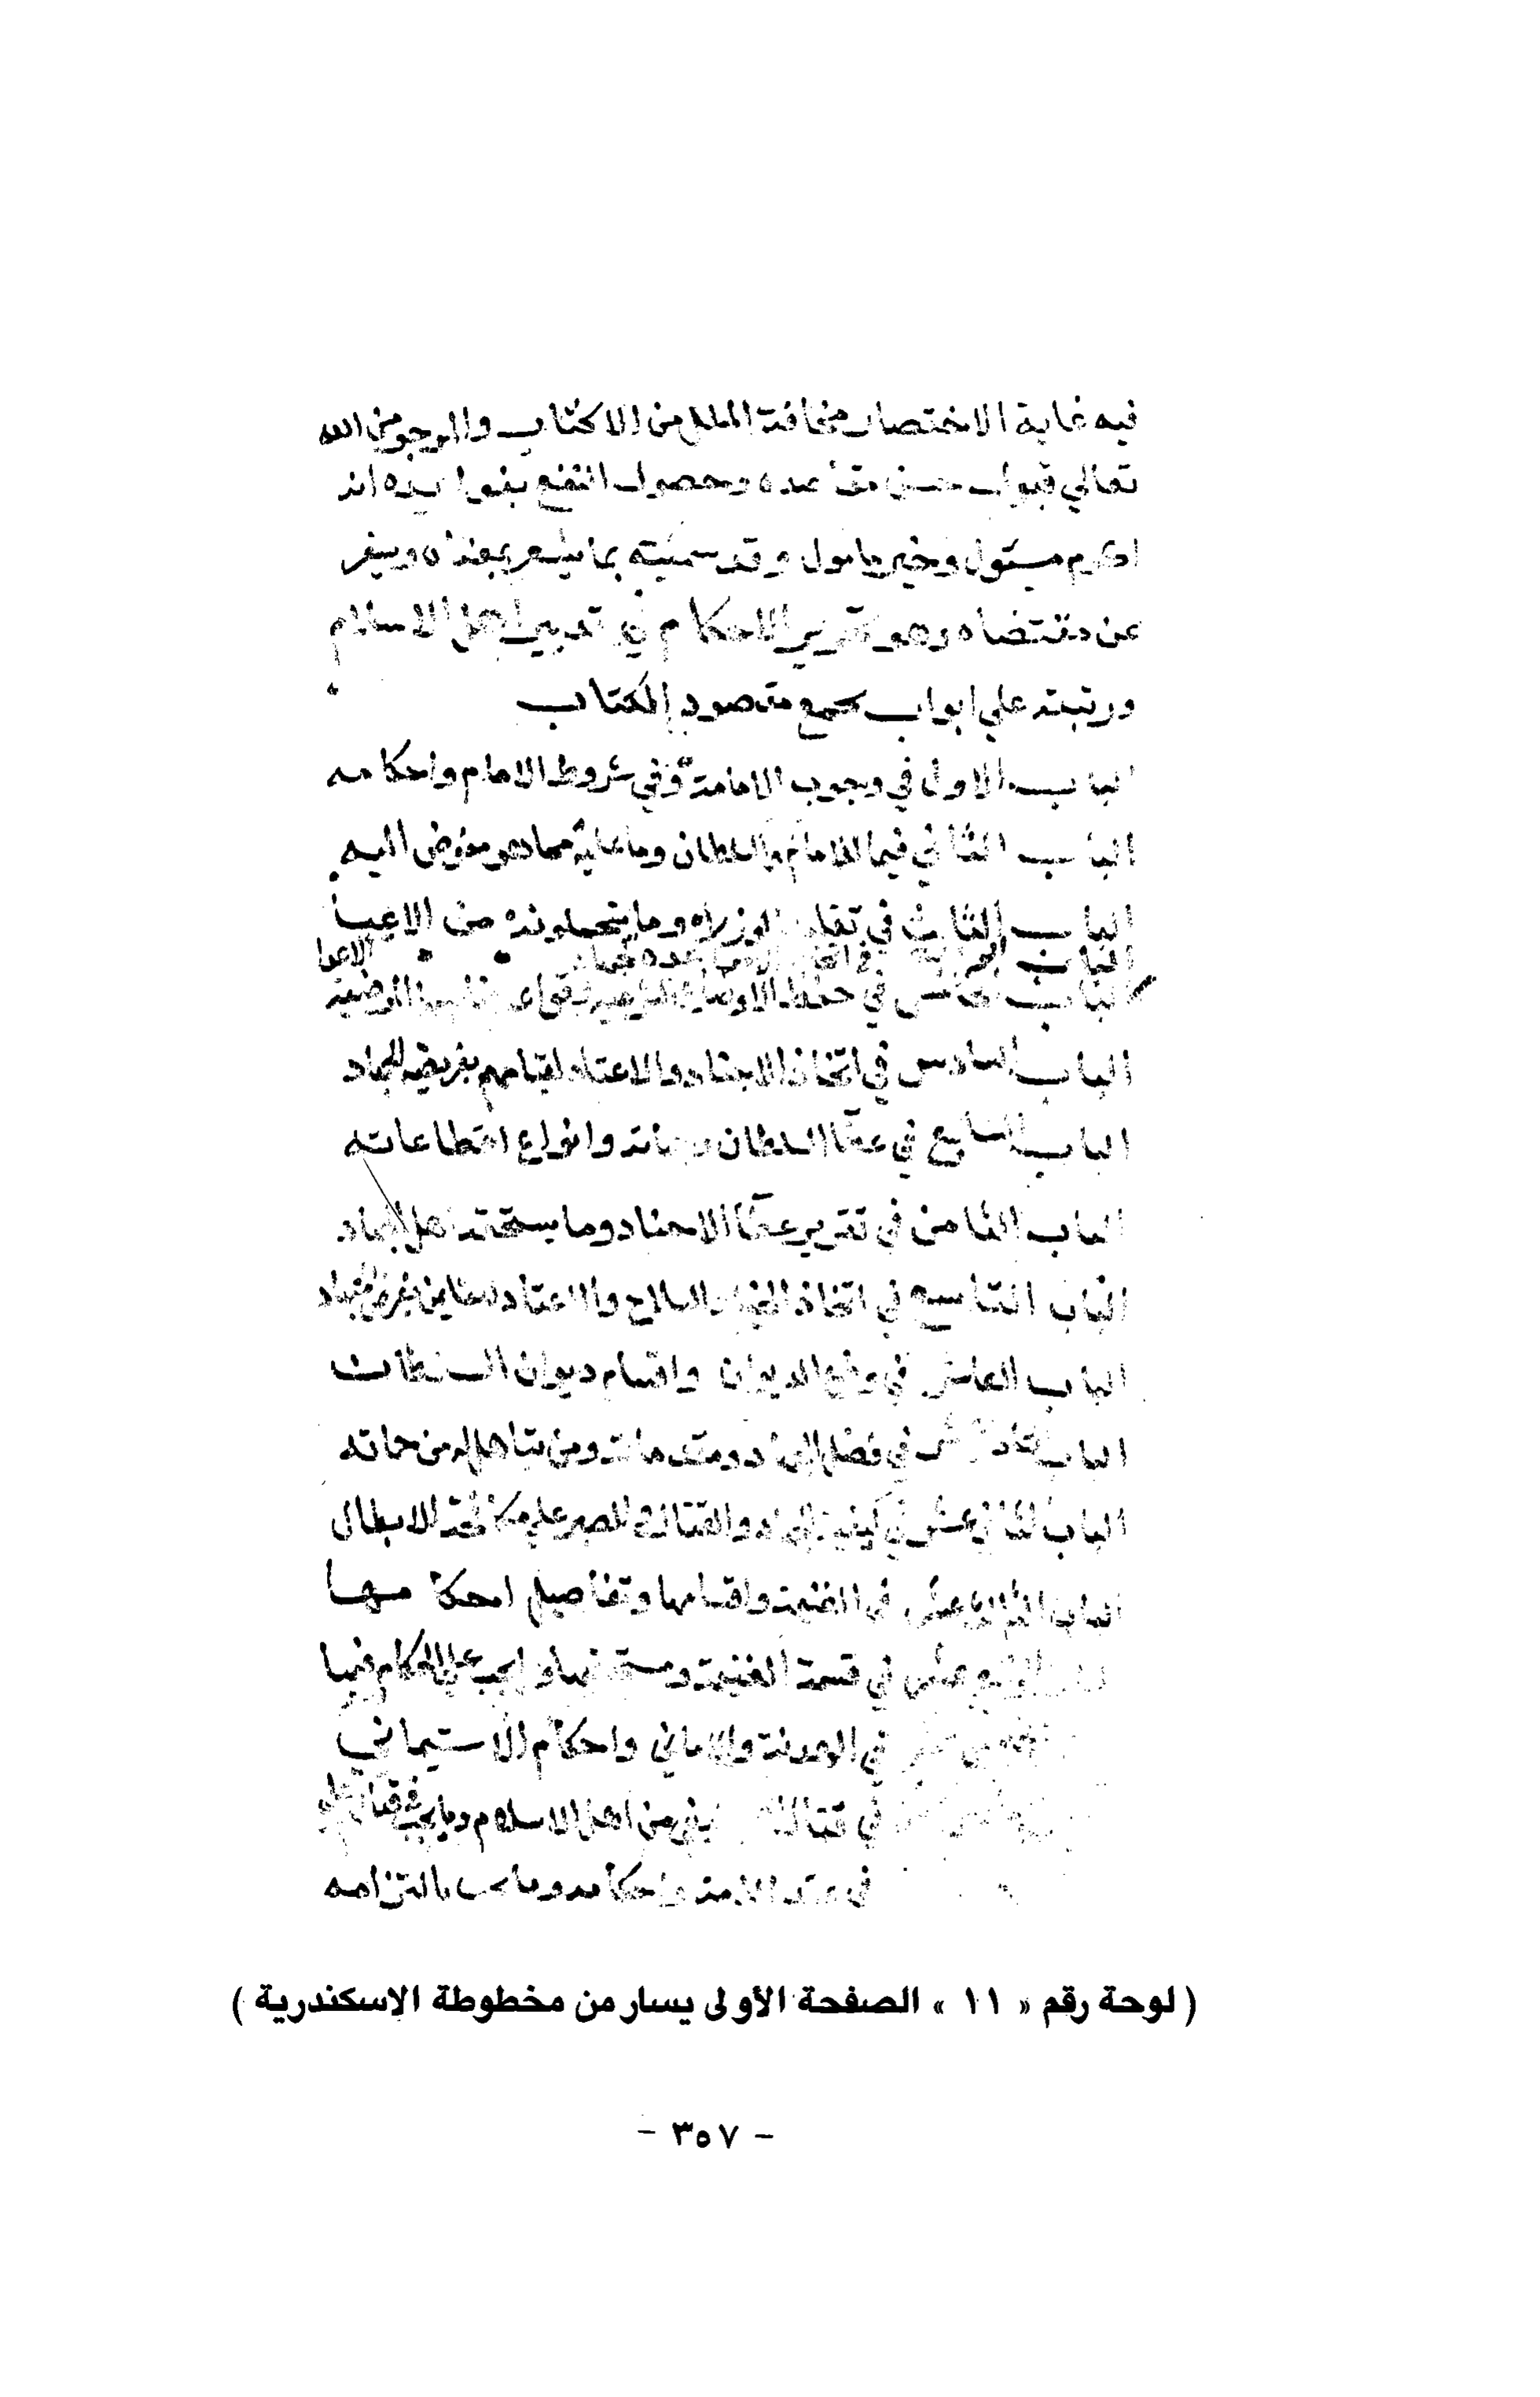 فيه غاية الاختصار مخافة الملل من الاكثار والمرجو من الله
تعالي قبول حسن مقاصده وحصول النفع بفوايده انه
اكرم مسئول وخير مامول وقد سميته بما يشعر بمعناه ويسفر
عن مقتضاه وهو تحرير الاحكام في تدبير اهل الاسلام
ورتبته علي ابواب تجمع مقصود الكتاب
الباب الاول في وجوب الامامة وفي شروط الامام واحكامه
الباب الثاني فيما للامام والسلطان وما عليه مما هو مفوض اليه
الباب الثالث في تقليد الوزراء وما يتحملونه من الاعبا
الباب الرابع في اتخاذ الامراء عدة لجهاد الاعدا
الباب الخامس في حفظ الاوضاع الشرعية وقواعد مناصبها المرضية
الباب السادس في اتخاذ الاجناد والاعتاد لقيامهم بفريضة الجهاد
الباب السابع في عطا السلطان وجهاته وانواع اقطاعاته
الباب الثامن في تقرير عطا الاجناد وما يستحقه اهل الجهاد
الباب التاسع في اتخاذ الخيل والسلاح والاعتاد للقايمين بفرض الجهاد
الباب العاشر في وضع الديوان واقسام ديوان السلطان
الباب الحادي عشر في فضل الجهاد ومقدماته ومن يتاهل له من حماته
الباب الثاني عشر في كيفية الجهاد والقتال والصبر علي مكافحة الابطال
الباب الثالث عشر في الغنيمة واقسامها وتفاصيل احكامها
الرابع عشر في قسمة الغنيمة ومستحقيها وما يجب علي الحكام فيها
الخامس عشر في الهدنة والامان واحكام الاستيمان
في قتال البغي من اهل الاسلام وما يجب في قتالهم
في عقد الذمة واحكامه وما يجب بالتزامه
( لوحة رقم « ١١ » الصفحة الأولى يسار من مخطوطة الإسكندرية )
- ٣٥٧ -